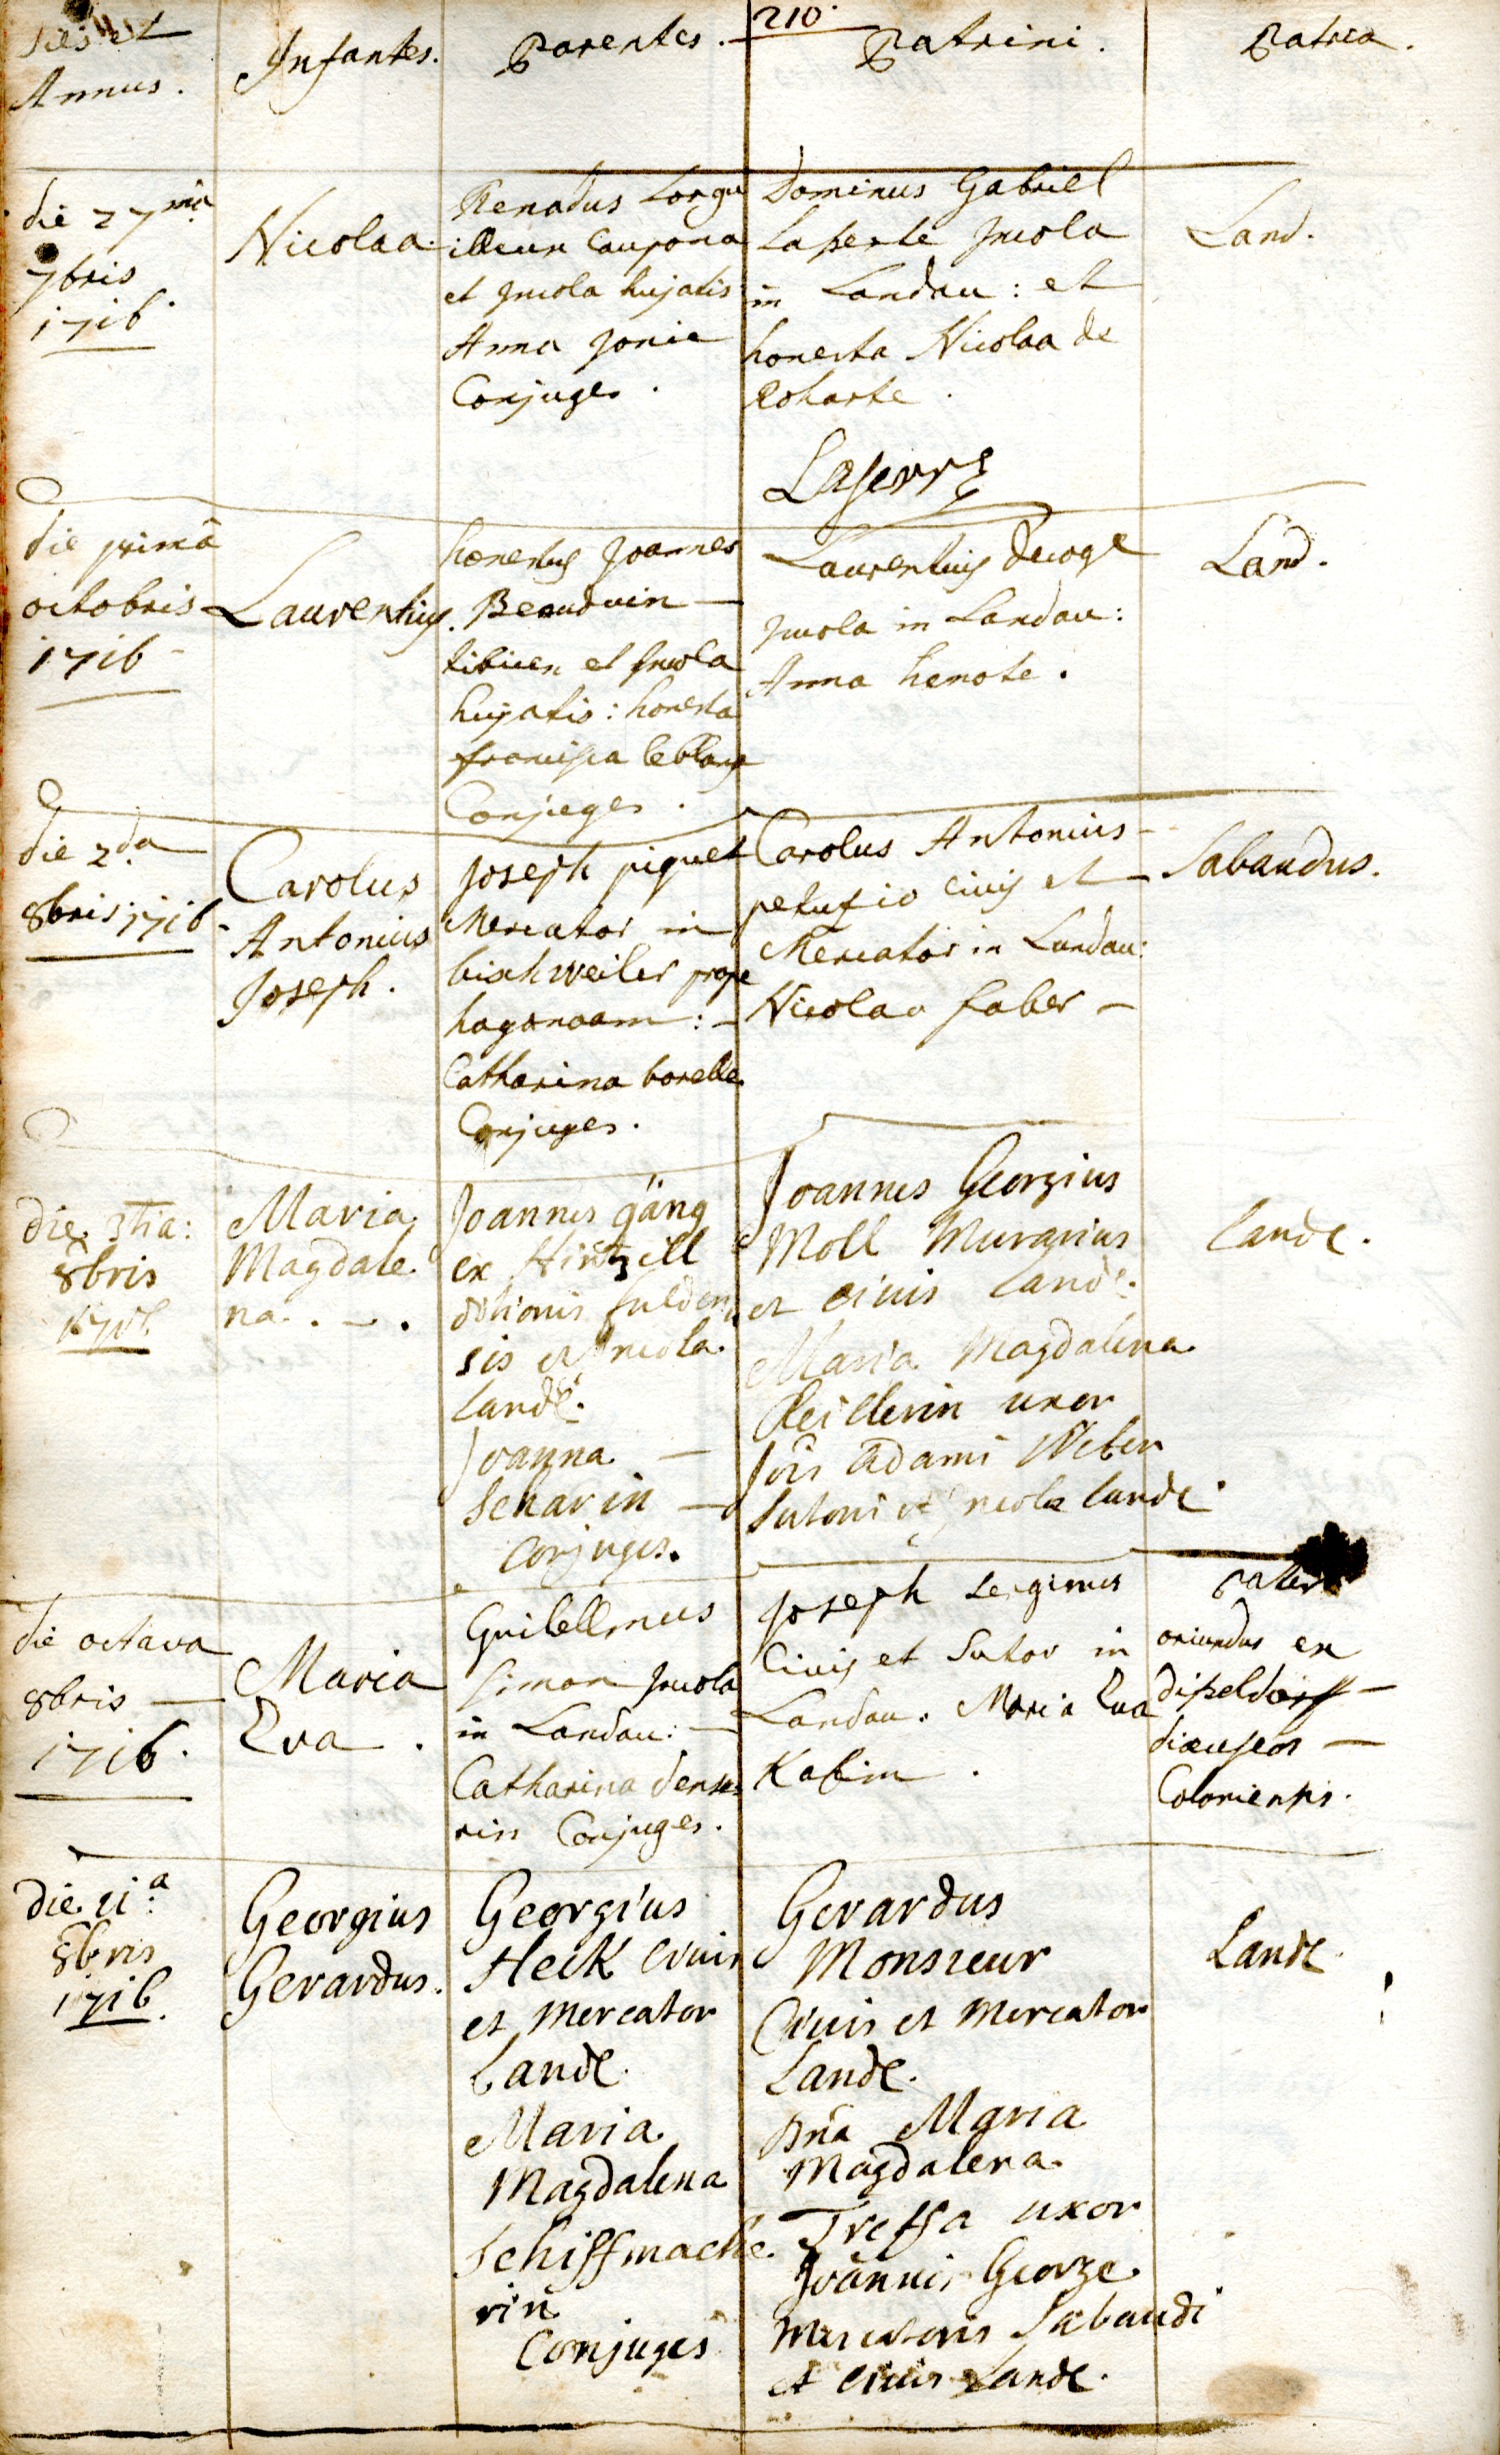 210.
Dies et
Annus.
Infantes.
Parentes.
Patrini.
Patria.
die 27ma
7bris
1716.
Nicolaa.
Renatus Longu
illeux Caupona
et Incola hujatis
Anna
Conjuges.
Dominus Gabriel
Laserre Incola
in Landau: et
honesta Nicolaa de
Laserre
Land.
die primâ
octobris
1716
Laurentius.
honestus Joannes
Beauduin —
tibicen et Incola
hujatis: honesta
francisca leblang
Conjuges.
Laurentius
Incola in Landau:
Anna henote.
Land.
die 2da
8bris 1716
Carolus
Antonius
Joseph.
Joseph piquet
Mercator in
bischweiler prope
haganoam: —
Catharina borelle
Conjuges.
Carolus Antonius
civis et
Mercator in Landau:
Nicolaa faber —
Sabaudus.
die 3tia:
8bris
1716
Maria
Magdale
na. . — .
Joannes gäng
ex
ditionis fulden
sis et Incola
Landæ.
Joanna —
Scharin —
Conjuges.
Joannes Georgius
Moll Murarius
et civis Landæ.
Maria Magdalena
uxor
Jois Adami Weber
Sutoris et Incolæ Landæ.
Landæ.
die octava
8bris —
1716.
Maria
Eva .
Guilellmus
Simon Incola
in Landau: —
Catharina
rin Conjuges.
Joseph
Civis et Sutor in
Landau. Maria Eva
.
pater
oriundus ex
diseldorff —
—
Coloniensis.
die 11a:
8bris
1716.
Georgius
Gerardus.
Georgius
Heck Civis
et Mercator
Landæ.
Maria
Magdalena
Schiffmache
rin
Conjuges
Gerardus
Monsieur
Civis et Mercator
Landæ.
Dna Maria
Magdalena
uxor
Joannis George
Mercatoris Sabaudi
et Civis Landæ.
Landæ.